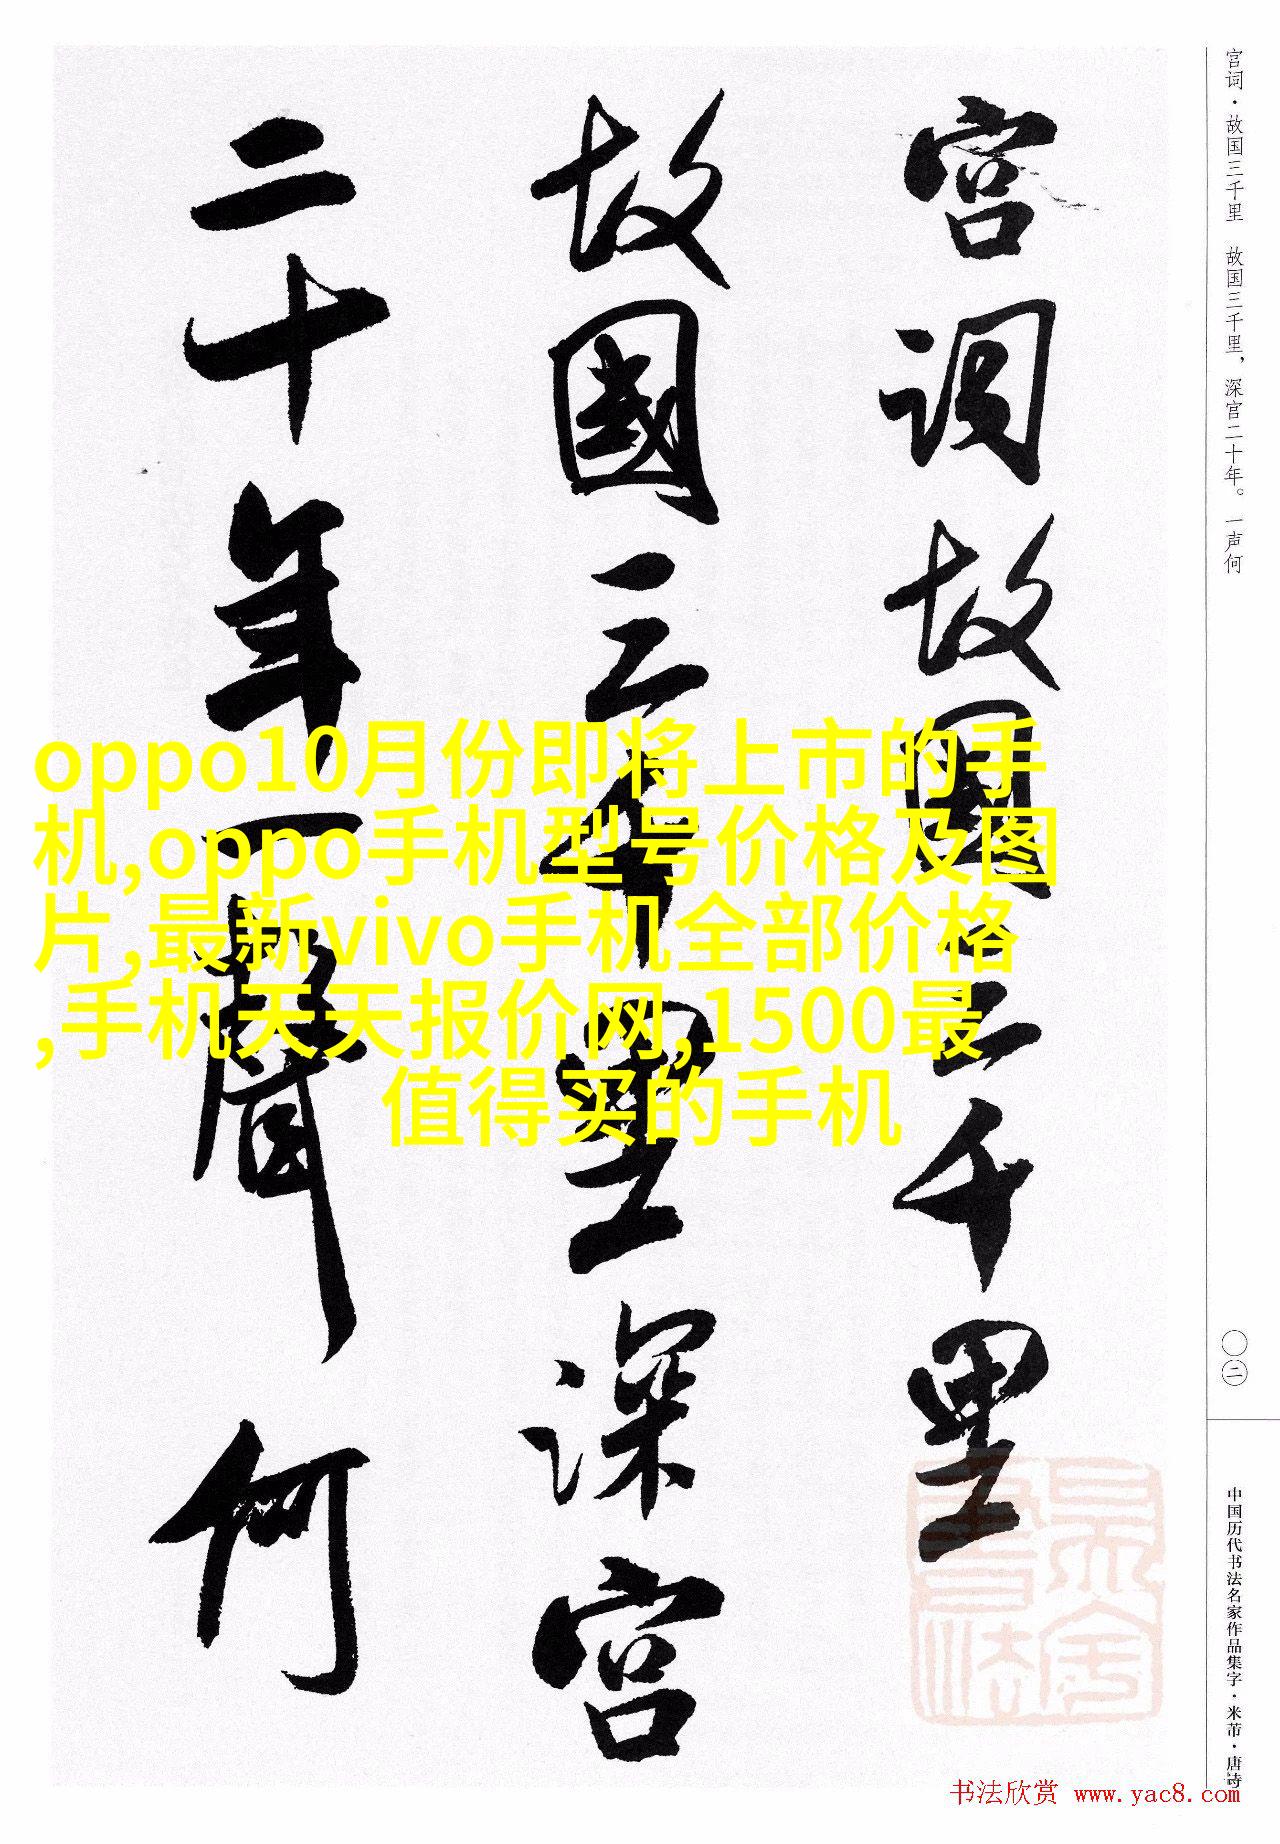 宫词·故国三千里　故国三千里，深宫二十年。一声何
宫词故国三千里
故國三千里深宫
二十年一聲何
oppo10月份即将上市的手
机,oppo手机型号价格及图
片,最新vivo手机全部价格
,手机天天报价网,1500最
值得买的手机
〇二
中国历代书法名家作品集字·米芾·唐诗
书法欣赏 www.yac8.com